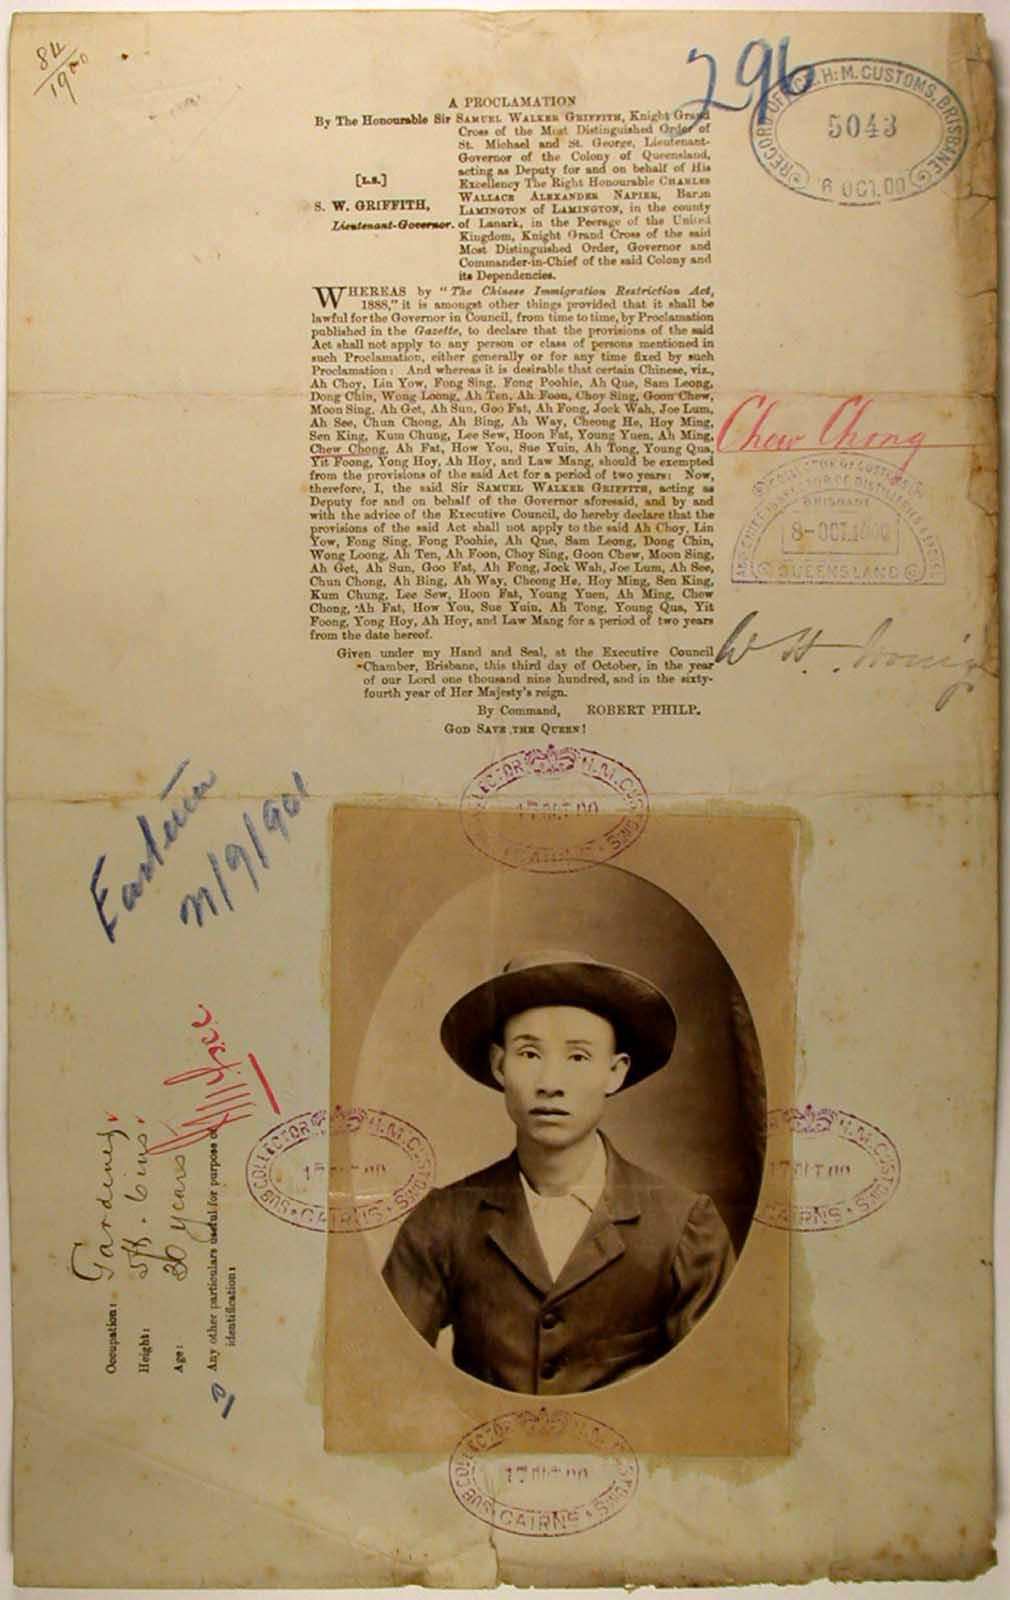 84
1900
296
RECORD OFFICE. H.M. CUSTOMS, BRISBANE
5043
6 OCT. 00
A PROCLAMATION
By The Honourable Sir SAMUEL WALKER GRIFFITH, Knight Grand
Cross of the Most Distinguished Order of
St. Michael and St. George, Lieutenant-
Governor of the Colony of Queensland,
acting as Deputy for and on behalf of His
[L.S.]
Excellency The Right Honourable CHARLES
WALLACE ALEXANDER NAPIER, Baron
S. W. GRIFFITH,
LAMINGTON of LAMINGTON, in the county
Lieutenant-Governor.
of Lanark, in the Peerage of the United
Kingdom, Knight Grand Cross of the said
Most Distinguished Order, Governor and
Commander-in-Chief of the said Colony and
its Dependencies.
WHEREAS by "The Chinese Immigration Restriction Act,
1888," it is amongst other things provided that it shall be
lawful for the Governor in Council, from time to time, by Proclamation
published in the Gazette, to declare that the provisions of the said
Act shall not apply to any person or class of persons mentioned in
such Proclamation, either generally or for any time fixed by such
Proclamation: And whereas it is desirable that certain Chinese, viz.,
Ah Choy, Lin Yow, Fong Sing, Fong Poohie, Ah Que, Sam Leong,
Dong Chin, Wong Loong, Ah Ten, Ah Foon, Choy Sing, Goon Chew,
Moon Sing, Ah Get, Ah Sun, Goo Fat, Ah Fong, Jock Wah, Joe Lum,
Ah See, Chun Chong, Ah Bing, Ah Way, Cheong He, Hoy Ming,
Sen King, Kum Chung, Lee Sew, Hoon Fat, Young Yuen, Ah Ming,
Chew Chong, Ah Fat, How You, Sue Yuin, Ah Tong, Young Qua,
Yit Foong, Yong Hoy, Ah Hoy, and Law Mang, should be exempted
from the provisions of the said Act for a period of two years: Now,
therefore, I, the said Sir SAMUEL WALKER GRIFFITH, acting as
Deputy for and on behalf of the Governor aforesaid, and by and
with the advice of the Executive Council, do hereby declare that the
provisions of the said Act shall not apply to the said Ah Choy, Lin
Yow, Fong Sing, Fong Poohie, Ah Que, Sam Leong, Dong Chin,
Wong Loong, Ah Ten, Ah Foon, Choy Sing, Goon Chew, Moon Sing,
Ah Get, Ah Sun, Goo Fat, Ah Fong, Jock Wah, Joe Lum, Ah See,
Chun Chong, Ah Bing, Ah Way, Cheong He, Hoy Ming, Sen King,
Kum Chung, Lee Sew, Hoon Fat, Young Yuen, Ah Ming, Chew
Chong, Ah Fat, How You, Sue Yuin, Ah Tong, Young Qua, Yit
Foong, Yong Hoy, Ah Hoy, and Law Mang for a period of two years
from the date hereof.
Given under my Hand and Seal, at the Executive Council
Chamber, Brisbane, this third day of October, in the year
of our Lord one thousand nine hundred, and in the sixty-
fourth year of Her Majesty's reign.
By Command, ROBERT PHILP.
GOD SAVE THE QUEEN!
Chew Chong
COLLECTOR OF CUSTOMS
AND CHIEF INSPECTOR OF DISTILLERIES & EXCISE
BRISBANE
8-OCT.1900
QUEENSLAND
W. H.
Eastern
/9/901
COLLECTOR H.M. CUSTOMS
17 OCT 00
CAIRNS
Occupation: Gardener
Height: 5ft. 6ins
Age: 30 years
Any other particulars useful for purpose of
identification:
SUB COLLECTOR H.M. CUSTOMS
17 OCT 00
CAIRNS
H.M. CUSTOMS
17 OCT 00
CAIRNS
SUB COLLECTOR H.M. CUSTOMS
17 OCT 00
CAIRNS